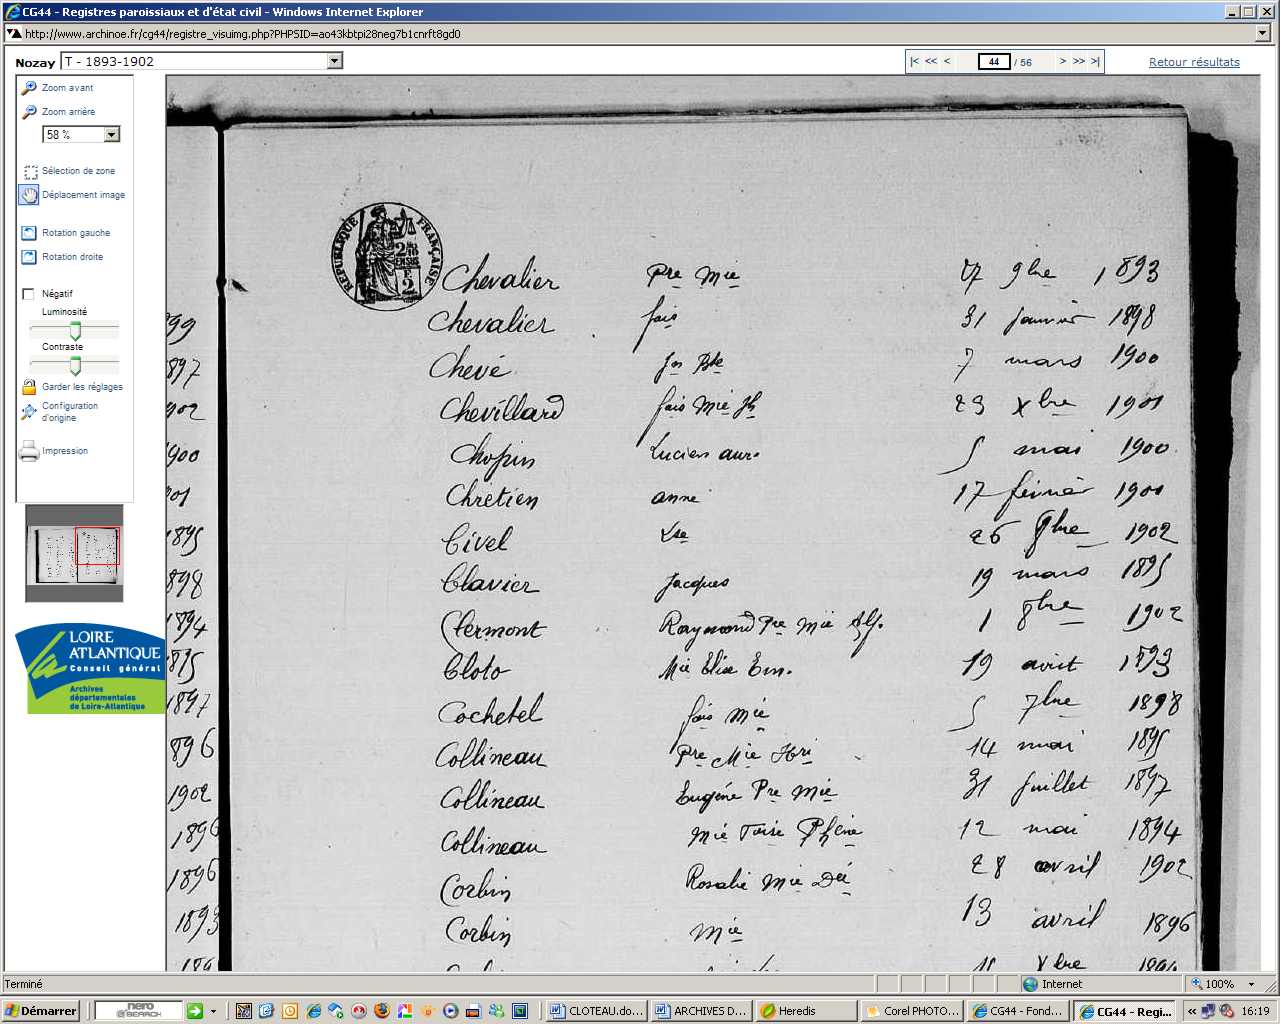 CG44 - Registres paroissiaux et d'état civil - Windows Internet Explorer
http://www.archinoe.fr/cg44/registre_visuimg.php?PHPSID=ao43kbtpi28neg7b1cnrft8gd0
Nozay T - 1893-1902
|< << < 44 / 56 > >> >|
Retour résultats
Zoom avant
Zoom arrière
58 %
Sélection de zone
Déplacement image
Rotation gauche
Rotation droite
Négatif
Luminosité
Contraste
Garder les réglages
Configuration
d'origine
Impression
LOIRE
ATLANTIQUE
Conseil général
Archives
départementales
de Loire-Atlantique
REPUBLIQUE FRANÇAISE
Chevalier Pre Mie 9bre 1893
Chevalier fois 31 janvier 1898
Chevé Jn Bte 7 mars 1900
Chevillard fois Mie Jh 23 Xbre 1901
Chopin Lucien aur. 5 mai 1900
Chrétien anne 17 février 1900
Civel 26 1902
Clavier Jacques 19 mars 1895
Clermont Raymond Pre Mie Alf. 1 8bre 1902
Cloto Mie Elise Em. 19 avril 1893
Cochetel fois Mie 5 7bre 1898
Collineau Pre Mie Hri 14 mai 1895
Collineau Eugéne Pre Mie 31 juillet 1897
Collineau Mie 12 mai 1894
Corbin Rosalie Mie 28 avril 1902
Corbin Mie 13 avril 1896
Xbre
899
897
902
900
901
1895
898
1894
895
1897
896
1902
1896
1896
1893
Terminé
Internet
100%
Démarrer
nero
SEARCH
CLOTEAU.do...
ARCHIVES D...
Heredis
Corel PHOTO...
CG44 - Fond...
CG44 - Regi...
16:19